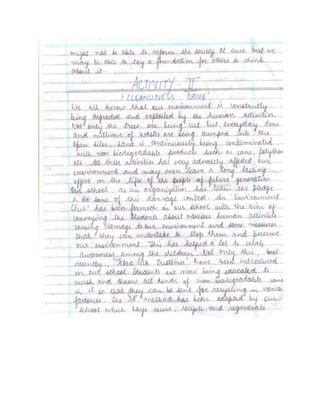 might not be able to reform the society at once but we
may be able to lay a foundation for others to think
about it.
ACTIVITY II
'CLEANLINESS DRIVE'
We all know that our environment is constantly
being degraded and exploited by the human activities.
Not only the trees are being cut but everyday tons
and millions of wastes are being dumped into the
open sites. Land is continuously being contaminated
with non biodegradable products such as cans, polythene
etc. All these activities has very adversely affected our
environment and may even leave a long lasting
effect on the life of the people of future generation
Our school, as an organisation, has taken the pledge
to do some of this damage control. An 'Environment
Club' has been formed in our school with the aim of
conveying the students about various human activities
causing damage to our environment and some measures
that they can undertake to stop them and preserve
our environment. This has helped a lot to create
awareness among the children. Not only this, but
recently, have been introduced
in our school. Students are now being educated to
and throw all kinds of non biodegradable cans
in it so that they can be sent for recycling in various
factories. The 3R method has been adopted by our
school which says reuse, recycle and regenerate